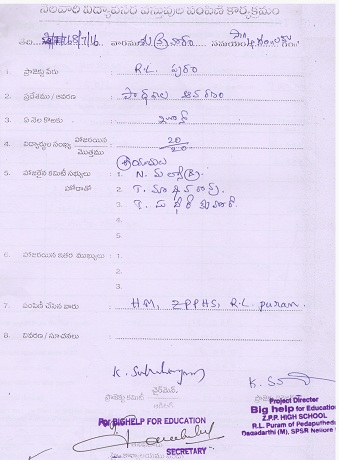 నెలవారీ విద్యావసర వస్తువుల పంపిణీ కార్యక్రమం
తేది 8/7/16 వారము శుక్రవారం సమయం
1. ప్రాజెక్టు పేరు : R.L. పురం
2. ప్రదేశము / ఆవరణ : పాఠశాల ఆవరణ
3. ఏ నెల కొరకు : జూలై
4. విద్యార్థుల సంఖ్య హాజరయిన / మొత్తము : 20 / 20
5. హాజరైన కమిటీ సభ్యులు : 1. N.
హోదాతో 2. T.
3. T.
4.
5.
6. హాజరయిన ఇతర సభ్యులు : 1.
2.
3.
7. పంపిణీ చేసిన వారు : HM, ZPPHS, R.L. puram.
8. వివరణ / సూచనలు :
ఛైర్మెన్
ప్రాజెక్టు కమిటీ
Project Director
Big help for Education
Z.P.P. HIGH SCHOOL
R.L. Puram of Pedaputhedu
Dagadarthi (M), SPSR Nellore
For BIGHELP FOR EDUCATION
SECRETARY